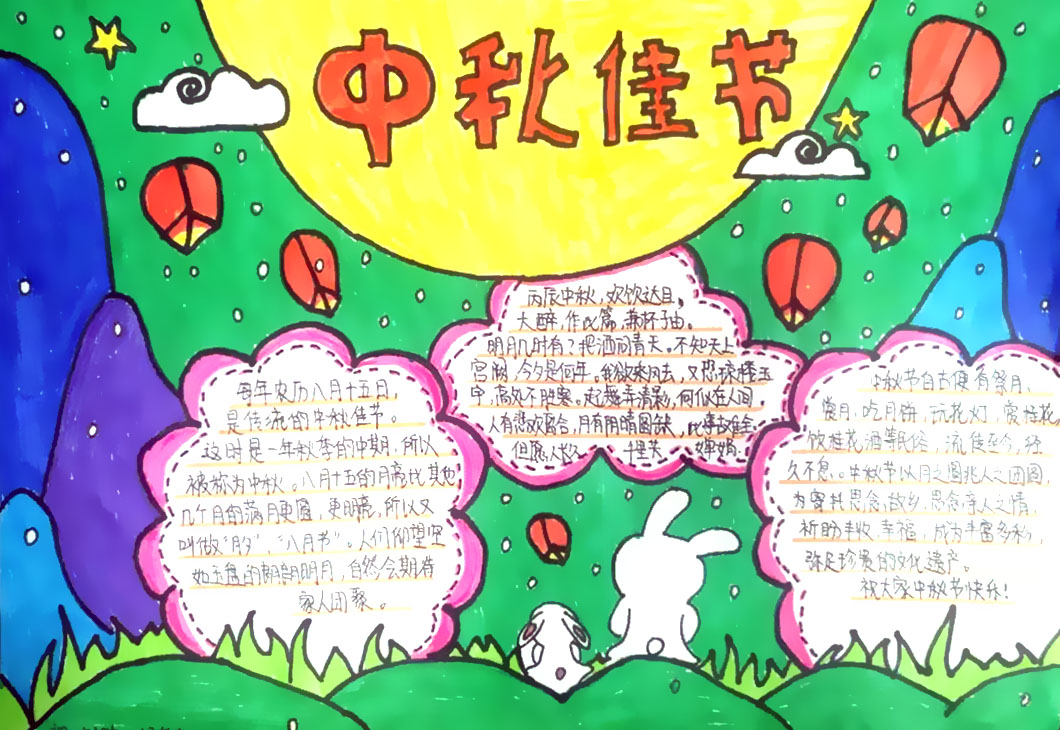 中秋佳节
每年农历八月十五日,
是传统的中秋佳节。
这时是一年秋季的中期,所以
被称为中秋。八月十五的月亮比其他
几个月的满月更圆,更明亮,所以又
叫做"月夕","八月节"。人们仰望
如玉盘的朗朗明月,自然会期待
家人团聚。
丙辰中秋,欢饮达旦,
大醉,作此篇,兼怀子由。
明月几时有?把酒问青天。不知天上
宫阙,今夕是何年。我欲乘风去,又恐琼楼玉
宇,高处不胜寒。起舞弄清影,何似在人间。
人有悲欢离合,月有阴晴圆缺,此事古难全
但愿人长久 千里共 婵娟
中秋节自古便有祭月、
赏月、吃月饼、玩花灯、赏桂花
饮桂花酒等民俗,流传至今,经
久不息。中秋节以月之圆兆人之团圆,
为寄托思念故乡,思念亲人之情,
祈盼丰收、幸福,成为丰富多彩,
弥足珍贵的文化遗产。
祝大家中秋节快乐!